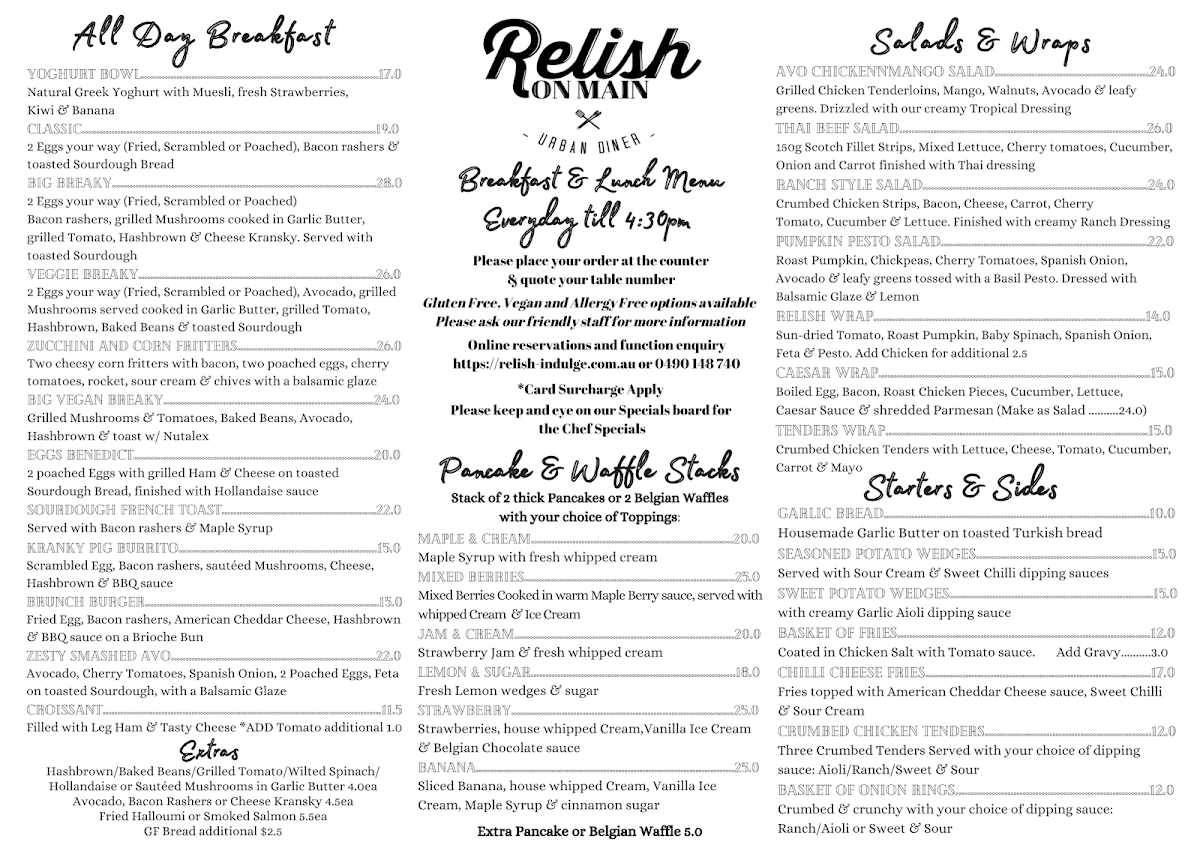 All Day Breakfast
YOGHURT BOWL 17.0
Natural Greek Yoghurt with Muesli, fresh Strawberries,
Kiwi & Banana
CLASSIC 19.0
2 Eggs your way (Fried, Scrambled or Poached), Bacon rashers &
toasted Sourdough Bread
BIG BREAKY 28.0
2 Eggs your way (Fried, Scrambled or Poached)
Bacon rashers, grilled Mushrooms cooked in Garlic Butter,
grilled Tomato, Hashbrown & Cheese Kransky. Served with
toasted Sourdough
VEGGIE BREAKY 26.0
2 Eggs your way (Fried, Scrambled or Poached), Avocado, grilled
Mushrooms served cooked in Garlic Butter, grilled Tomato,
Hashbrown, Baked Beans & toasted Sourdough
ZUCCHINI AND CORN FRITTERS 26.0
Two cheesy corn fritters with bacon, two poached eggs, cherry
tomatoes, rocket, sour cream & chives with a balsamic glaze
BIG VEGAN BREAKY 24.0
Grilled Mushrooms & Tomatoes, Baked Beans, Avocado,
Hashbrown & toast w/ Nutalex
EGGS BENEDICT 20.0
2 poached Eggs with grilled Ham & Cheese on toasted
Sourdough Bread, finished with Hollandaise sauce
SOURDOUGH FRENCH TOAST 22.0
Served with Bacon rashers & Maple Syrup
KRANKY PIG BURRITO 15.0
Scrambled Egg, Bacon rashers, sautéed Mushrooms, Cheese,
Hashbrown & BBQ sauce
BRUNCH BURGER 15.0
Fried Egg, Bacon rashers, American Cheddar Cheese, Hashbrown
& BBQ sauce on a Brioche Bun
ZESTY SMASHED AVO 22.0
Avocado, Cherry Tomatoes, Spanish Onion, 2 Poached Eggs, Feta
on toasted Sourdough, with a Balsamic Glaze
CROISSANT 11.5
Filled with Leg Ham & Tasty Cheese *ADD Tomato additional 1.0
Extras
Hashbrown/Baked Beans/Grilled Tomato/Wilted Spinach/
Hollandaise or Sautéed Mushrooms in Garlic Butter 4.0ea
Avocado, Bacon Rashers or Cheese Kransky 4.5ea
Fried Halloumi or Smoked Salmon 5.5ea
GF Bread additional $2.5
Relish
ON MAIN
- URBAN DINER -
Breakfast & Lunch Menu
Everyday till 4:30pm
Please place your order at the counter
& quote your table number
Gluten Free, Vegan and Allergy Free options available
Please ask our friendly staff for more information
Online reservations and function enquiry
https://relish-indulge.com.au or 0490 148 740
*Card Surcharge Apply
Please keep and eye on our Specials board for
the Chef Specials
Pancake & Waffle Stacks
Stack of 2 thick Pancakes or 2 Belgian Waffles
with your choice of Toppings:
MAPLE & CREAM 20.0
Maple Syrup with fresh whipped cream
MIXED BERRIES 25.0
Mixed Berries Cooked in warm Maple Berry sauce, served with
whipped Cream & Ice Cream
JAM & CREAM 20.0
Strawberry Jam & fresh whipped cream
LEMON & SUGAR 18.0
Fresh Lemon wedges & sugar
STRAWBERRY 25.0
Strawberries, house whipped Cream,Vanilla Ice Cream
& Belgian Chocolate sauce
BANANA 25.0
Sliced Banana, house whipped Cream, Vanilla Ice
Cream, Maple Syrup & cinnamon sugar
Extra Pancake or Belgian Waffle 5.0
Salads & Wraps
AVO CHICKENN'MANGO SALAD 24.0
Grilled Chicken Tenderloins, Mango, Walnuts, Avocado & leafy
greens. Drizzled with our creamy Tropical Dressing
THAI BEEF SALAD 26.0
150g Scotch Fillet Strips, Mixed Lettuce, Cherry tomatoes, Cucumber,
Onion and Carrot finished with Thai dressing
RANCH STYLE SALAD 24.0
Crumbed Chicken Strips, Bacon, Cheese, Carrot, Cherry
Tomato, Cucumber & Lettuce. Finished with creamy Ranch Dressing
PUMPKIN PESTO SALAD 22.0
Roast Pumpkin, Chickpeas, Cherry Tomatoes, Spanish Onion,
Avocado & leafy greens tossed with a Basil Pesto. Dressed with
Balsamic Glaze & Lemon
RELISH WRAP 14.0
Sun-dried Tomato, Roast Pumpkin, Baby Spinach, Spanish Onion,
Feta & Pesto. Add Chicken for additional 2.5
CAESAR WRAP 15.0
Boiled Egg, Bacon, Roast Chicken Pieces, Cucumber, Lettuce,
Caesar Sauce & shredded Parmesan (Make as Salad ..........24.0)
TENDERS WRAP 15.0
Crumbed Chicken Tenders with Lettuce, Cheese, Tomato, Cucumber,
Carrot & Mayo
Starters & Sides
GARLIC BREAD 10.0
Housemade Garlic Butter on toasted Turkish bread
SEASONED POTATO WEDGES 15.0
Served with Sour Cream & Sweet Chilli dipping sauces
SWEET POTATO WEDGES 15.0
with creamy Garlic Aioli dipping sauce
BASKET OF FRIES 12.0
Coated in Chicken Salt with Tomato sauce. Add Gravy..........3.0
CHILLI CHEESE FRIES 17.0
Fries topped with American Cheddar Cheese sauce, Sweet Chilli
& Sour Cream
CRUMBED CHICKEN TENDERS 12.0
Three Crumbed Tenders Served with your choice of dipping
sauce: Aioli/Ranch/Sweet & Sour
BASKET OF ONION RINGS 12.0
Crumbed & crunchy with your choice of dipping sauce:
Ranch/Aioli or Sweet & Sour